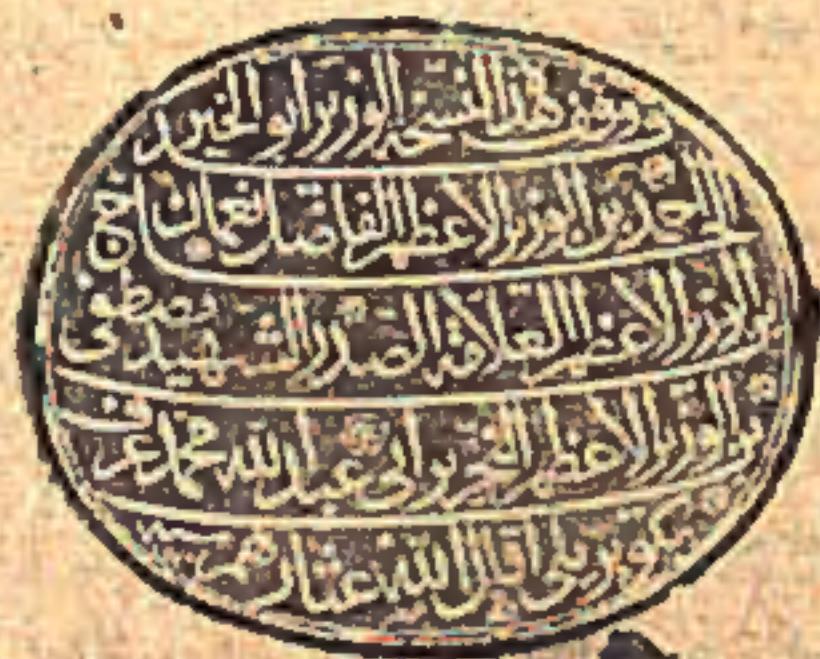 قد وقف هذا النسخه الوزير ابو الخير
الحاج احمد بن الوزير الاعظم الفاضل نعمان
بن الوزير الاعظم العلامة الصدر الشهيد مصطفى
بن الوزير الاعظم النحرير ابي عبد الله محمد عرف
بكوپريلي اقال الله عثارهم